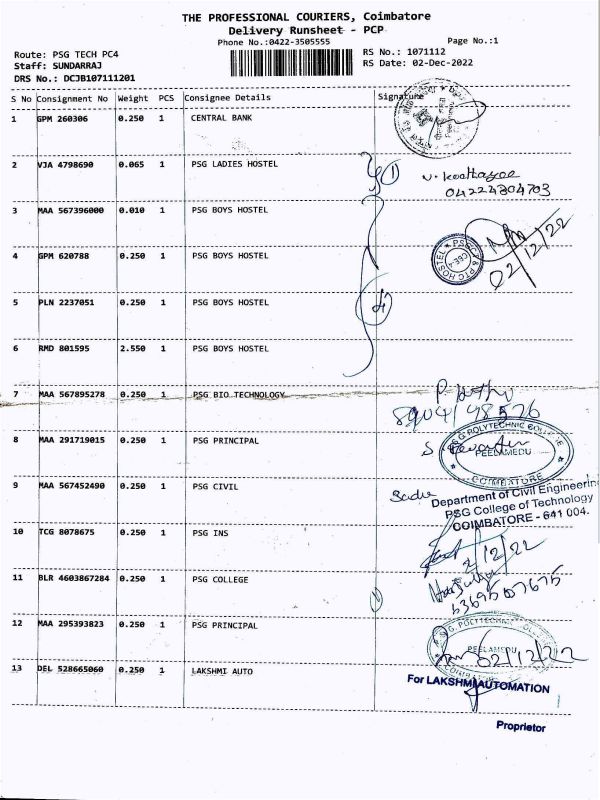 THE PROFESSIONAL COURIERS, Coimbatore
Delivery Runsheet - PCP
Phone No.:0422-3505555 Page No.:1
Route: PSG TECH PC4 RS No.: 1071112
Staff: SUNDARRAJ RS Date: 02-Dec-2022
DRS No.: DCJB107111201
S No Consignment No Weight PCS Consignee Details Signature
1 GPM 260306 0.250 1 CENTRAL BANK
2 VJA 4798690 0.065 1 PSG LADIES HOSTEL 1
04224304703
3 MAA 567396000 0.010 1 PSG BOYS HOSTEL
02/12/22
4 GPM 620788 0.250 1 PSG BOYS HOSTEL
5 PLN 2237051 0.250 1 PSG BOYS HOSTEL 4
6 RMD 801595 2.550 1 PSG BOYS HOSTEL
7 MAA 567895278 0.250 1 PSG BIO TECHNOLOGY
8 MAA 291719015 0.250 1 PSG PRINCIPAL
P.S.G. POLYTECHNIC COLLEGE
PEELAMEDU
COIMBATORE
9 MAA 567452490 0.250 1 PSG CIVIL
Department of Civil Engineering
PSG College of Technology
COIMBATORE - 641 004.
10 TCG 8078675 0.250 1 PSG INS
2/12/22
11 BLR 4603867284 0.250 1 PSG COLLEGE 1
12 MAA 295393823 0.250 1 PSG PRINCIPAL
P.S.G. POLYTECHNIC COLLEGE
PEELAMEDU
COIMBATORE
02/12/22
13 DEL 528665060 0.250 1 LAKSHMI AUTO
For LAKSHMI AUTOMATION
Proprietor